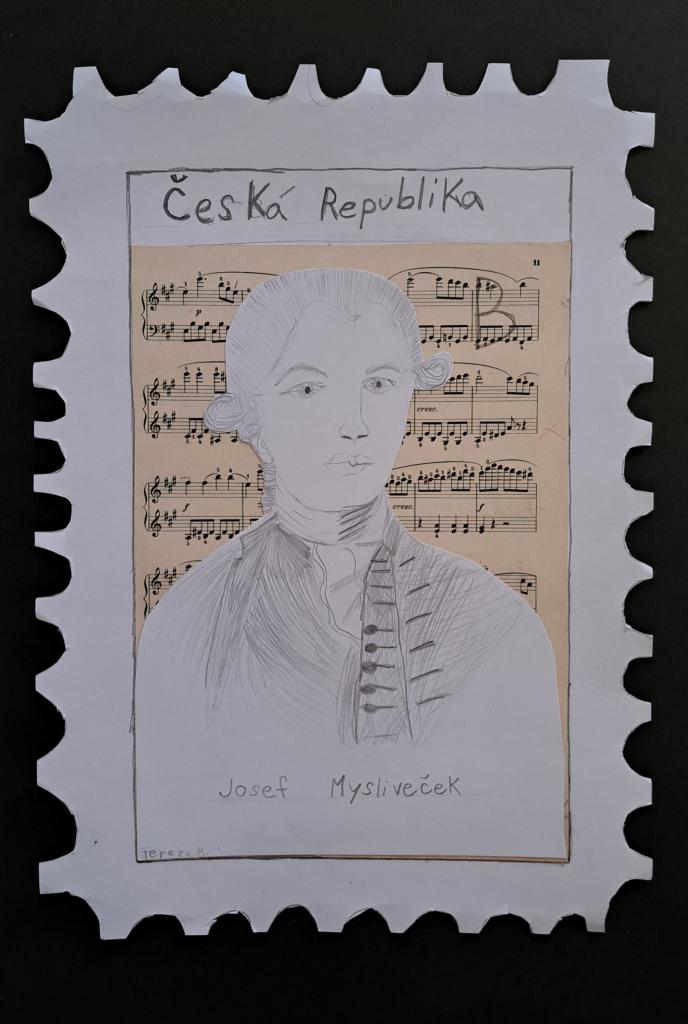 Česká Republika
11
B
p
cresc.
f
cresc.
f
Josef Mysliveček
Tereza B.